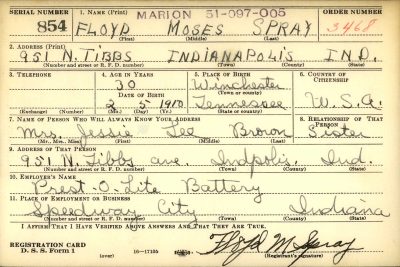 SERIAL NUMBER 1. NAME (Print) MARION 51-097-005 ORDER NUMBER
854 FLOYD MOSES SPRAY 3468
(First) (Middle) (Last)
2. ADDRESS (Print)
951 N. TIBBS INDIANAPOLIS IND.
(Number and street or R. F. D. number) (Town) (County) (State)
3. TELEPHONE 4. AGE IN YEARS 5. PLACE OF BIRTH 6. COUNTRY OF CITIZENSHIP
30 Winchester
DATE OF BIRTH (Town or county)
2 5 1910 Tennessee U.S.A.
(Exchange) (Number) (Mo.) (Day) (Yr.) (State or country)
7. NAME OF PERSON WHO WILL ALWAYS KNOW YOUR ADDRESS 8. RELATIONSHIP OF THAT PERSON
Mrs. Jessie Lee Brown Sister
(Mr., Mrs., Miss) (First) (Middle) (Last)
9. ADDRESS OF THAT PERSON
951 N. Tibbs ave. Indpolis. Ind.
(Number and street or R. F. D. number) (Town) (County) (State)
10. EMPLOYER'S NAME
Prest-O-Lite Battery
11. PLACE OF EMPLOYMENT OR BUSINESS
Speedway City Indiana
(Number and street or R. F. D. number) (Town) (County) (State)
I AFFIRM THAT I HAVE VERIFIED ABOVE ANSWERS AND THAT THEY ARE TRUE.
REGISTRATION CARD
D. S. S. Form 1 (over) 16-17105 Floyd M. Spray
(Registrant's signature)